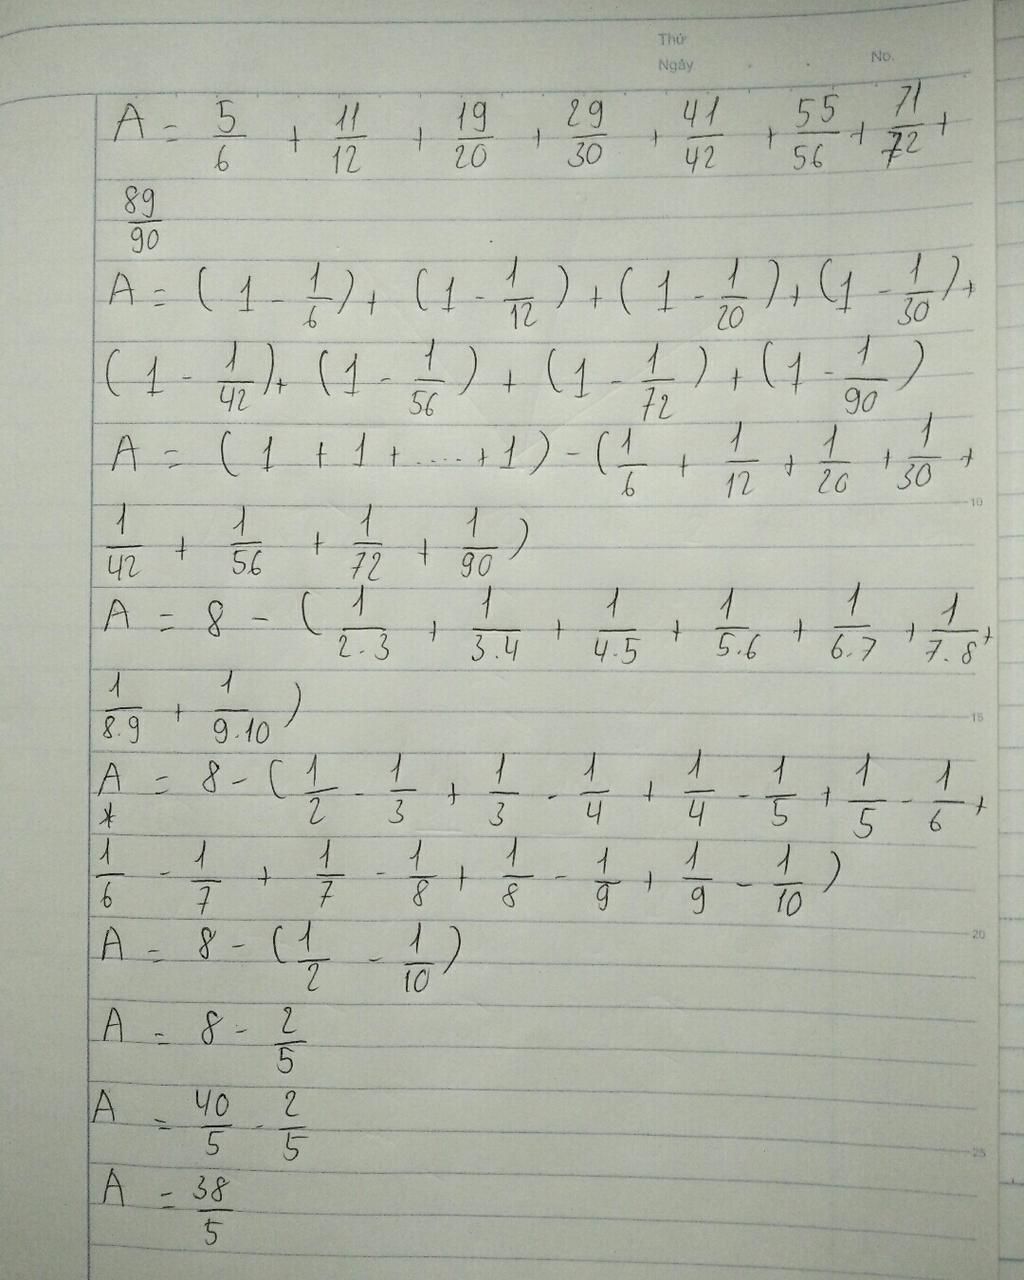 Thứ
Ngày . . No.
A = 5/6 + 11/12 + 19/20 + 29/30 + 41/42 + 55/56 + 71/72 +
89/90
A = (1 - 1/6) + (1 - 1/12) + (1 - 1/20) + (1 - 1/30) +
(1 - 1/42) + (1 - 1/56) + (1 - 1/72) + (1 - 1/90)
A = (1 + 1 + .... + 1) - (1/6 + 1/12 + 1/20 + 1/30 +
10
1/42 + 1/56 + 1/72 + 1/90)
A = 8 - (1/2.3 + 1/3.4 + 1/4.5 + 1/5.6 + 1/6.7 + 1/7.8 +
1/8.9 + 1/9.10)
15
A = 8 - (1/2 - 1/3 + 1/3 - 1/4 + 1/4 - 1/5 + 1/5 - 1/6 +
*
1/6 - 1/7 + 1/7 - 1/8 + 1/8 - 1/9 + 1/9 - 1/10)
A = 8 - (1/2 - 1/10)
20
A = 8 - 2/5
A = 40/5 - 2/5
25
A = 38/5